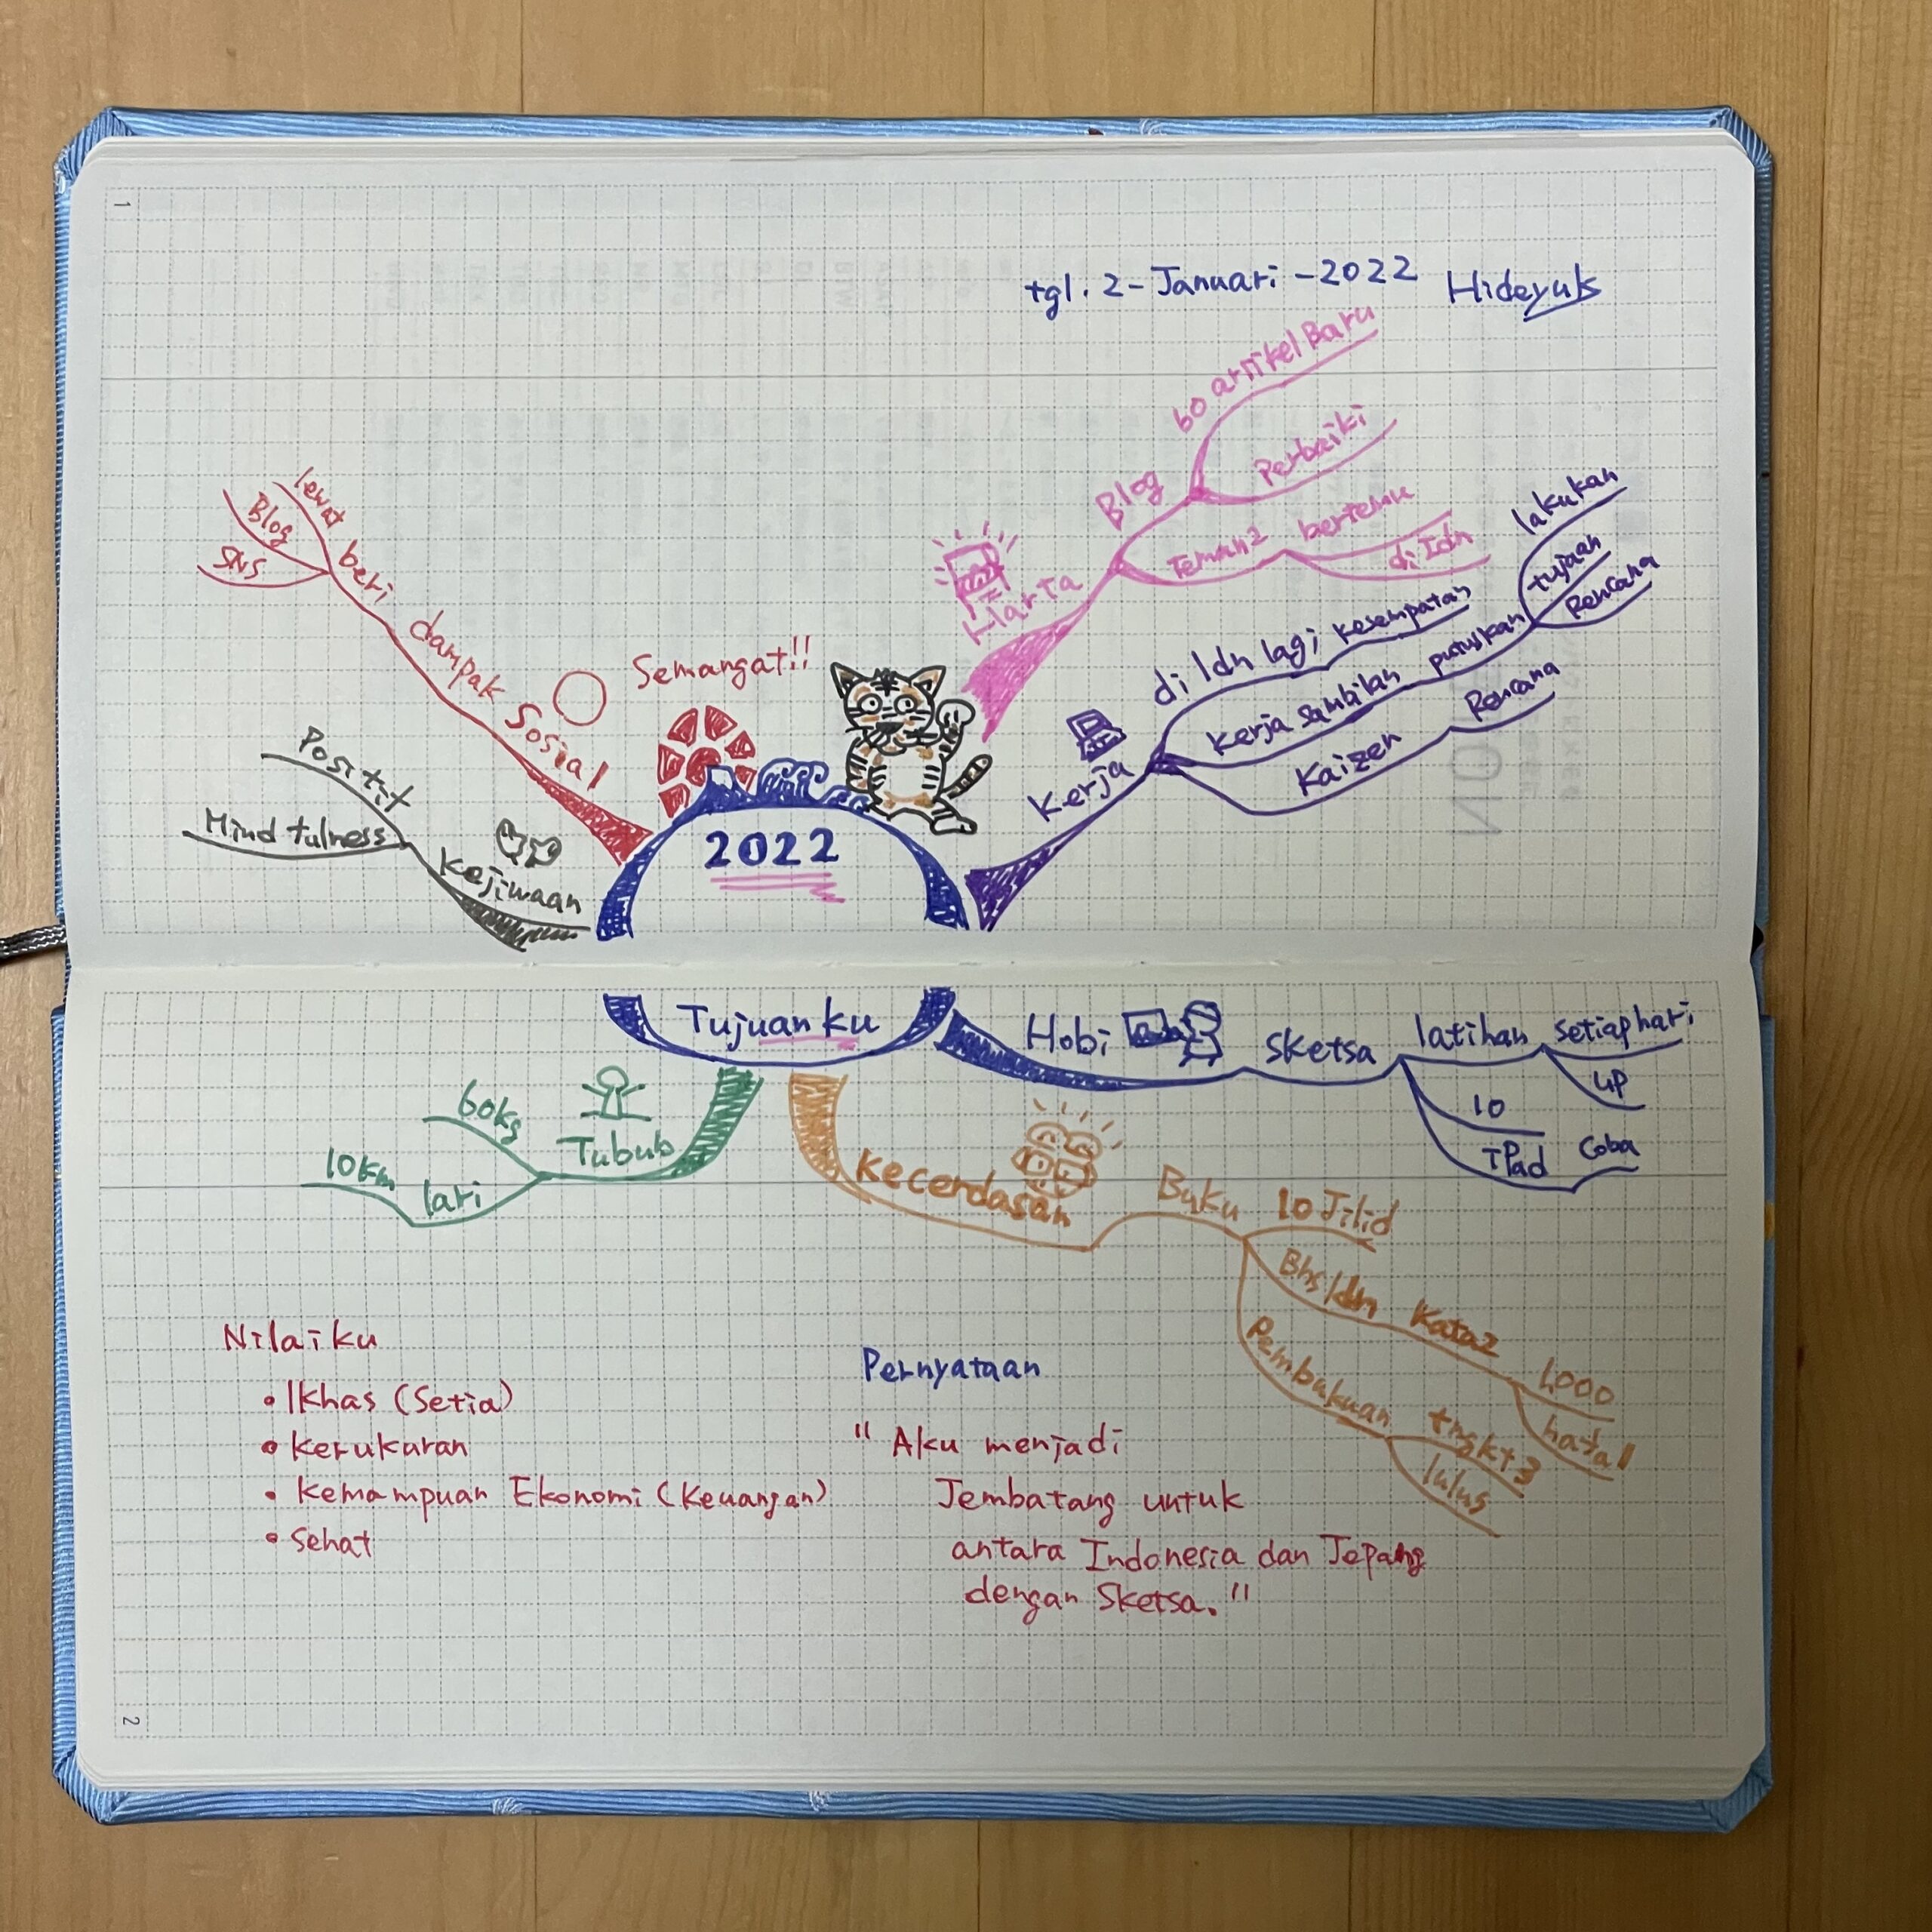 1
tgl. 2-Januari-2022 Hideyuki
60 artikel Baru
Perbaiki
Blog
Teman2 bertemu
di Idn
Harta
lakukan
tujaan
Rencana
di Idn lagi kesempatan
Kerja sambilan putuskan
Kaizen Rencana
Kerja
lewat
Blog
SNS
beri dampak Sosial
Semangat!!
Positif
Mindfulness
Kejiwaan
2022
Tujuanku
Hobi Sketsa latihan setiap hari
UP
10
iPad Coba
60kg
Tubuh
10km lari
Kecerdasan Buku 10 Jilid
Bhs Idn Kata2 1,000
hafal
Pembukuan tngkt 3
lulus
Nilaiku
• Ikhas (Setia)
• Kerukuran
• Kemampuan Ekonomi (Keuangan)
• Sehat
Pernyataan
" Aku menjadi
Jembatang untuk
antara Indonesia dan Jepang
dengan Sketsa."
2